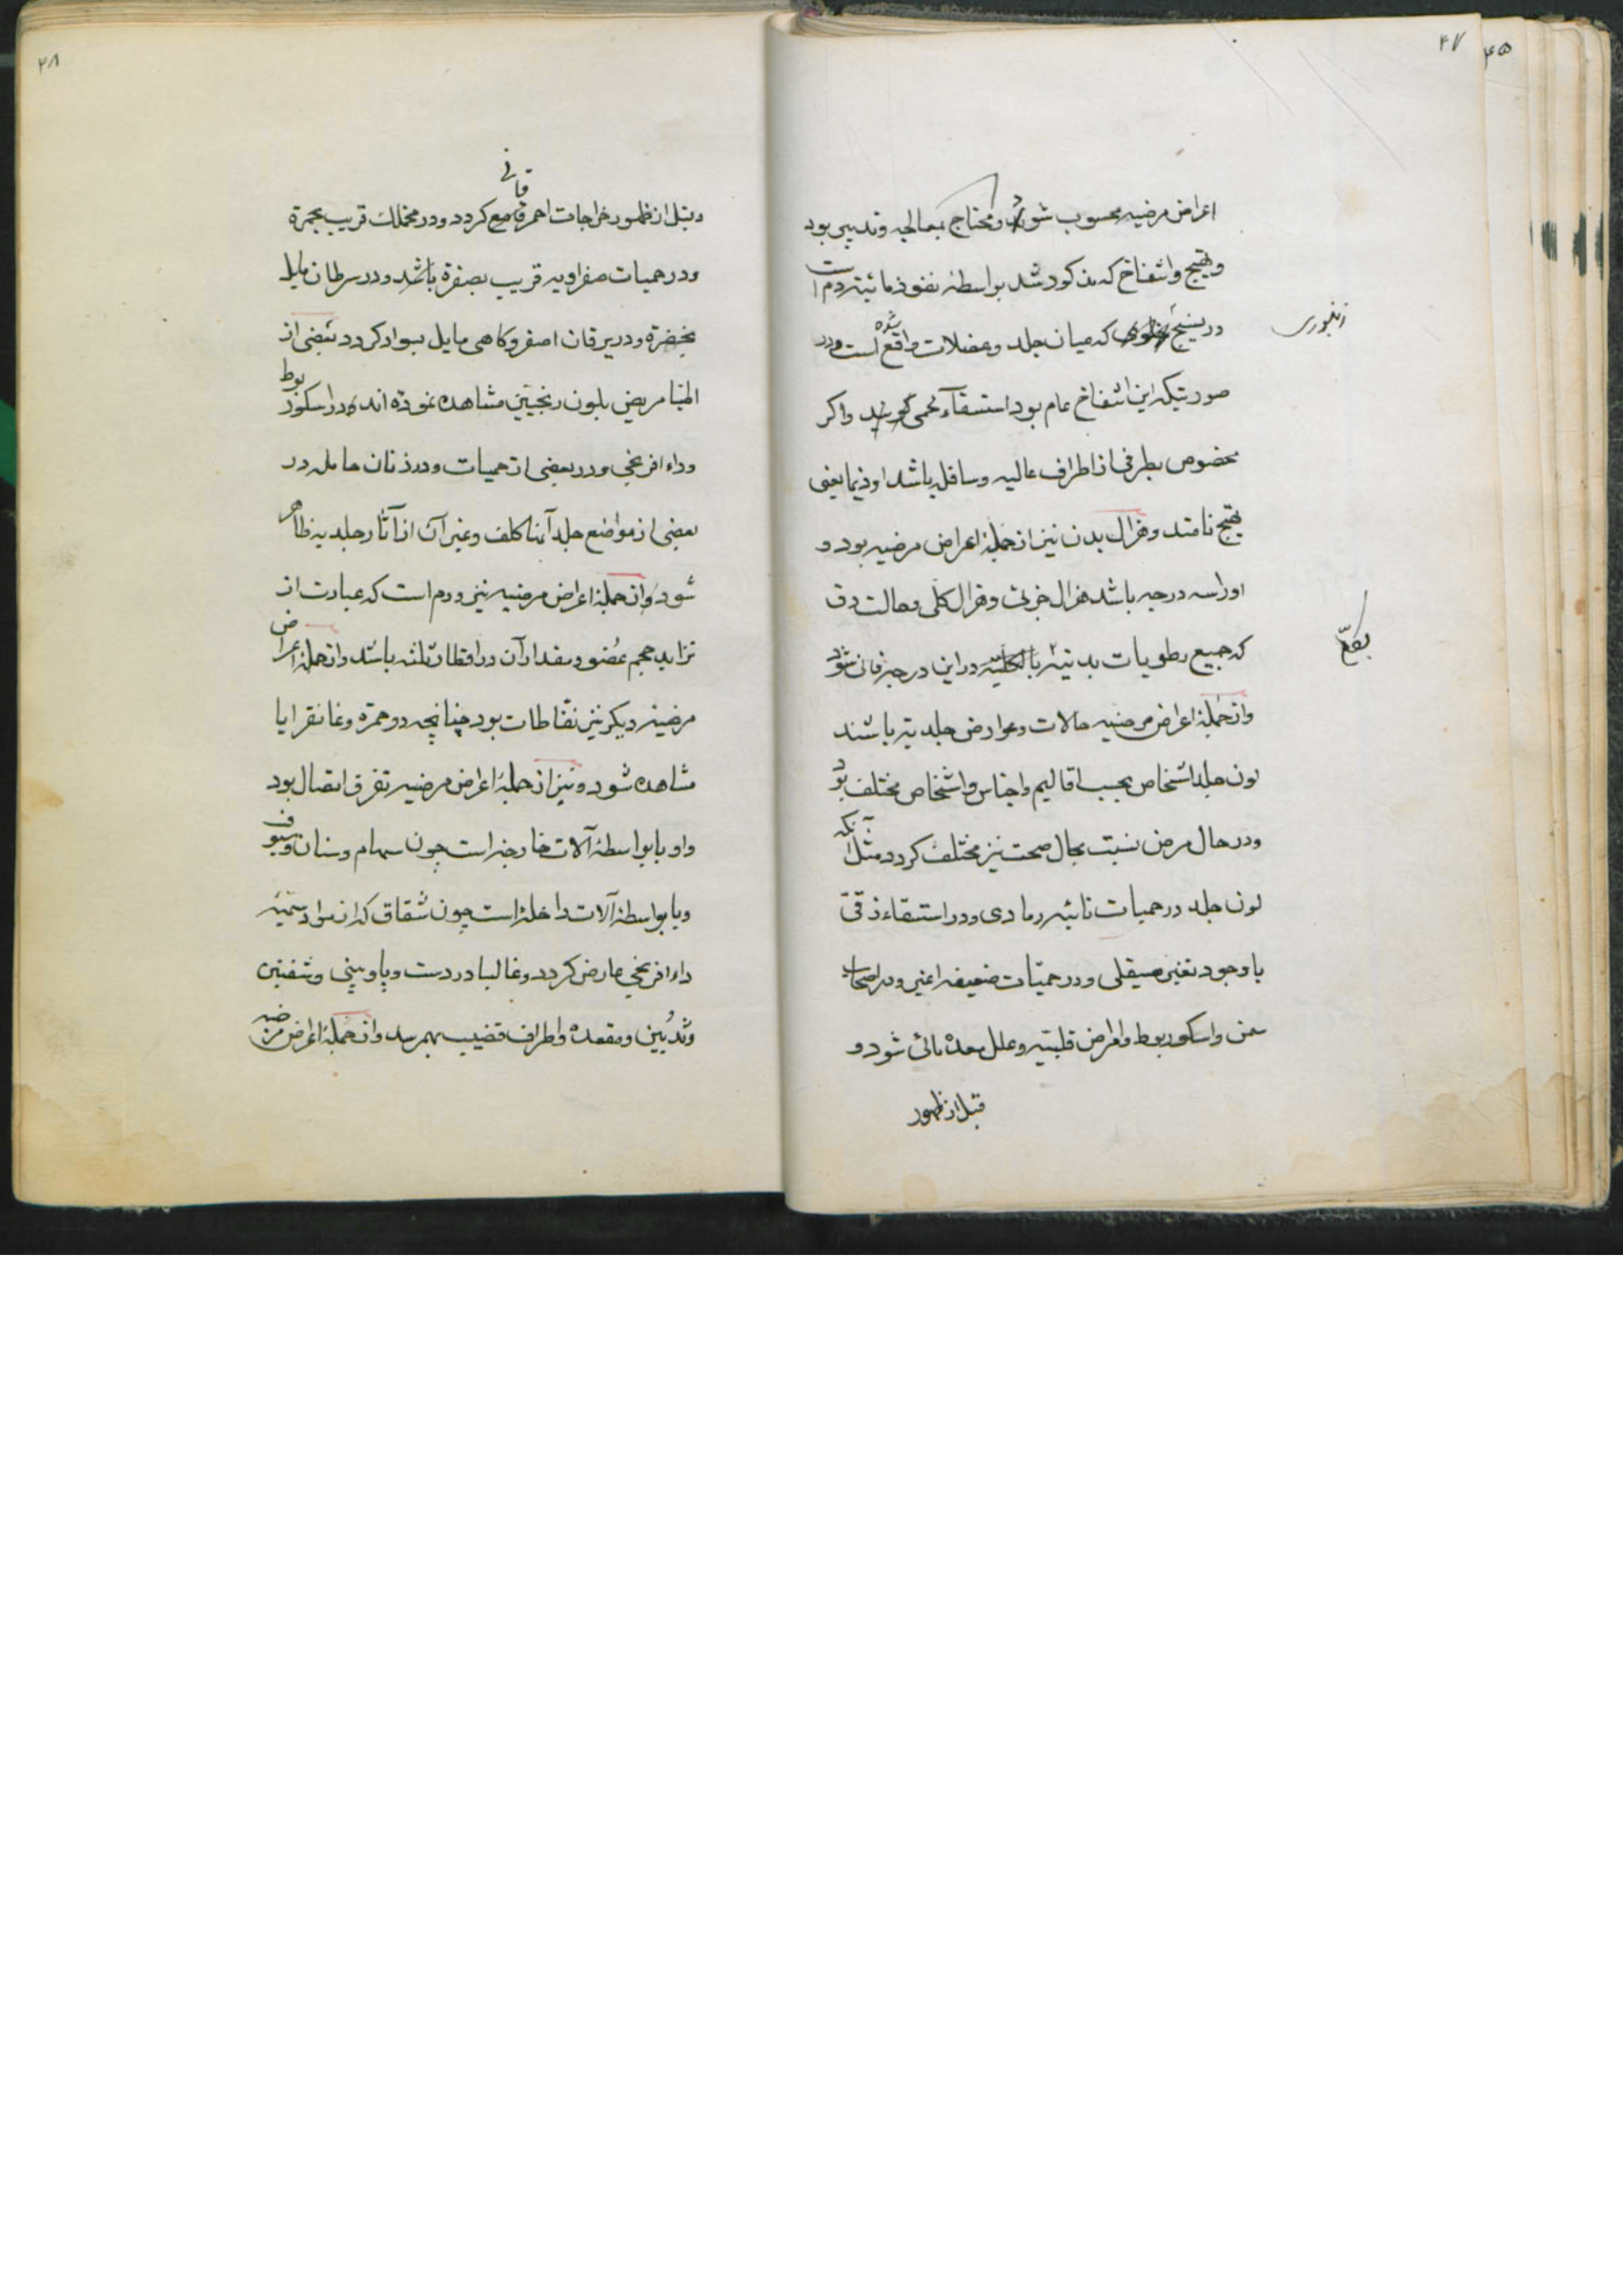 ۴۷
۴۵
اعراض مرضیه محسوب شود و محتاج بمعالجه و تدبیری بود
و تهیج و انتفاخ که مذکور شد بواسطهٔ نفوذ مائیته دم است
در نسیج که میان جلد و عضلات واقع شده است و در
زنبوری
صورتیکه این انتفاخ عام بود استسقاء لحمی گویند و اکر
مخصوص بطرفی از اطراف عالیه و سافله باشد اوذیما یعنی
تهیج نامند و هزال بدن نیز از جملهٔ اعراض مرضیه بود و
او را سه درجه باشد هزال جزئی و هزال کلی و حالت دق
که جمیع رطوبات بدنیّه بالکلیّه در این درجه فانی شود
وازجملهٔ اعراض مرضیه حالات و عوارض جلدیّه باشند
لون جلد اشخاص بحسب اقالیم و اجناس و اشخاص مختلف بود
و در حال مرض نسبت بحال صحت نیز مختلف کردد مثل آنکه
لون جلد در حمیات نائبه رمادی و در استسقاء زقّی
با وجود تغیر صیقلی و در حمیّات ضعیفه اغبر و در اصحاب
سمن و اسکوربوط و امراض قلبیّه و علل معده مائی شود و
قبل از ظهور
۴۸
و قبل از ظهور خراجات احمر قانی کردد و در مخملک قریب بحمرة
و در حمیات صفراویه قریب بصفرة باشد و در سرطان مایل
بخضرة و در یرقان اصفر و کاهی مایل بسواد کردد بعضی از
اطبّا مریض بلون زنجبیّن مشاهده نموده اند و در اسکوربوط
و داء افرنجی و در بعضی از حمیات و در زنان حامله در
بعضی از مواضع جلد آنها کلف و غیر آن از آثار جلدیه ظاهر
شود و از جملهٔ اعراض مرضیه نیز ورم است که عبارت از
تزاید حجم عُضو و مقدار آن در اقطار ثلثه باشد و از جملهٔ اعراض
مرضیهٔ دیکر نیز نفّاطات بود چنانچه در حمرة و غانقرایا
مشاهده شود و نیز از جملهٔ اعراض مرضیه تفرق اتصال بود
و او یا بواسطهٔ آلات خارجه است چون سهام و سنان و سیوف
و یا بواسطهٔ آلات داخله است چون شقاق که از مواد سمّیّه
داء افرنجی عارض کردد و غالبا در دست و پا و بینی و شفتین
و ثدیین و مقعده و اطراف قضیب بهم رسد و از جملهٔ اعراض مرضیه